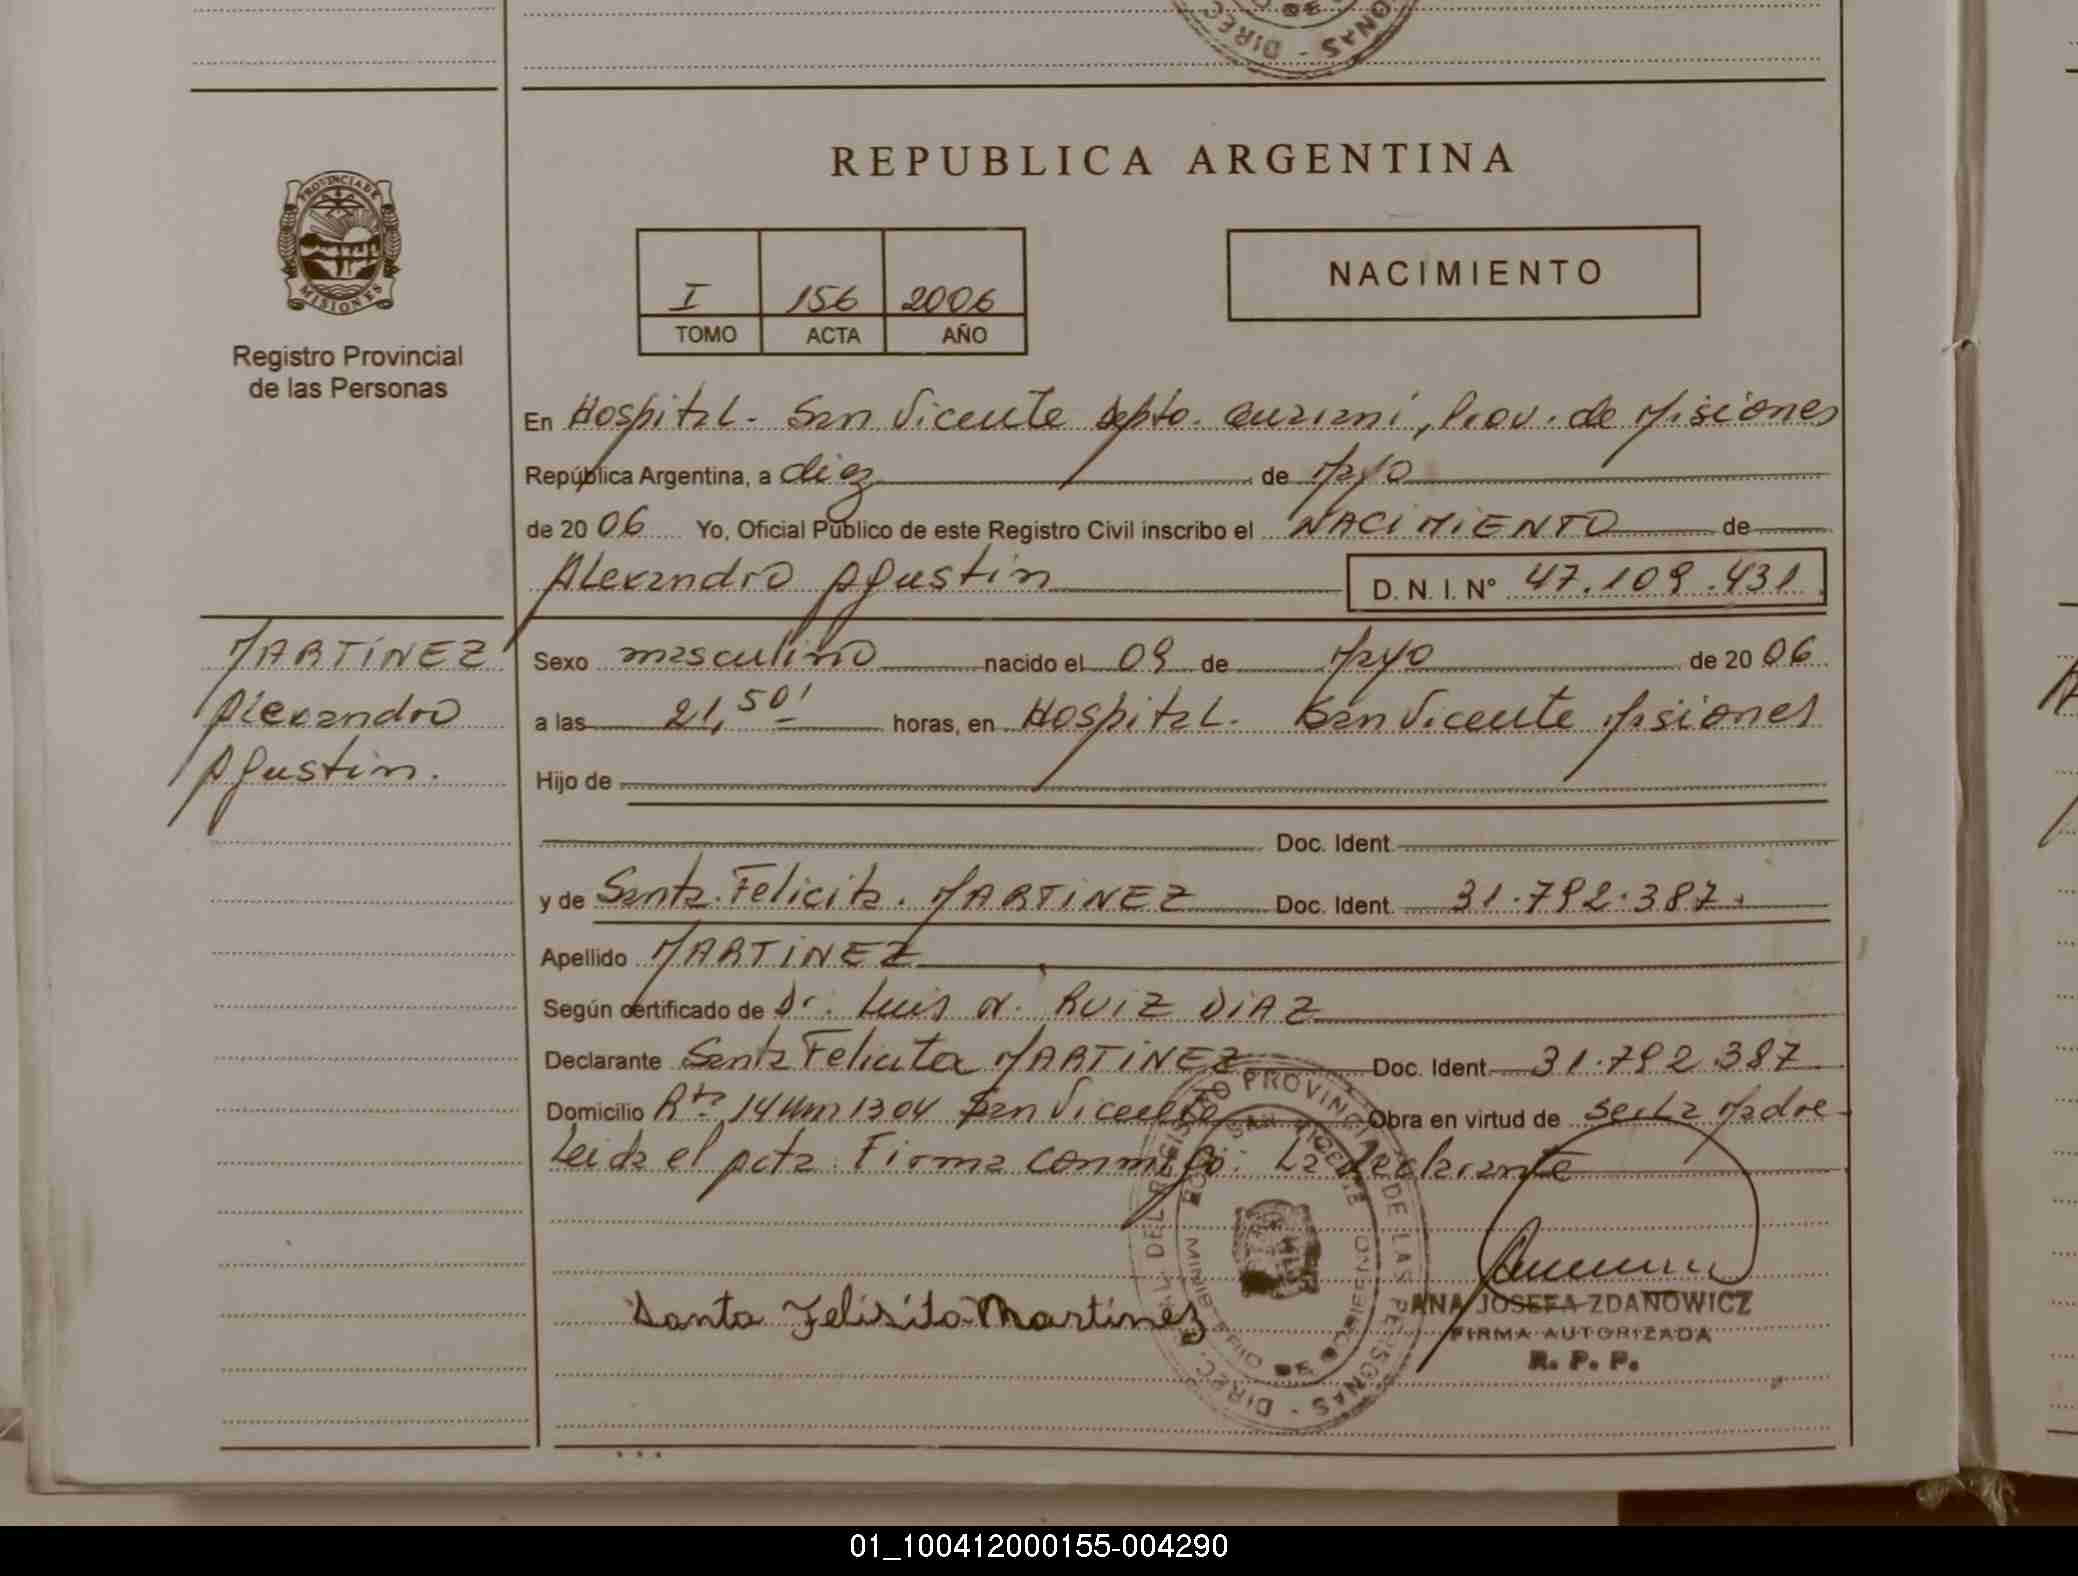 REPUBLICA ARGENTINA
PROVINCIA DE
MISIONES
Registro Provincial
de las Personas
I 156 2006
TOMO ACTA AÑO
NACIMIENTO
En Hospital - San Vicente Depto. Guaraní, Prov. de Misiones
República Argentina, a diez de Mayo
de 20 06 Yo, Oficial Público de este Registro Civil inscribo el NACIMIENTO de
Alexandro Agustin D. N. I. N° 47.109.431
MARTINEZ
Alexandro
Agustin.
Sexo masculino nacido el 09 de Mayo de 20 06
a las 21,50' horas, en Hospital - San Vicente Misiones
Hijo de
Doc. Ident.
y de Santa Felicita MARTINEZ Doc. Ident. 31.792.387
Apellido MARTINEZ
Según certificado de Dr. Luis A. RUIZ DIAZ
Declarante Santa Felicita MARTINEZ Doc. Ident. 31.792.387
Domicilio Rta 14 Km 1304 San Vicente Obra en virtud de ser La Madre
Leida el Acta Firma conmigo: La declarante
Santa Felisita Martinez
ANA JOSEFA ZDANOWICZ
FIRMA AUTORIZADA
R. P. P.
01_100412000155-004290